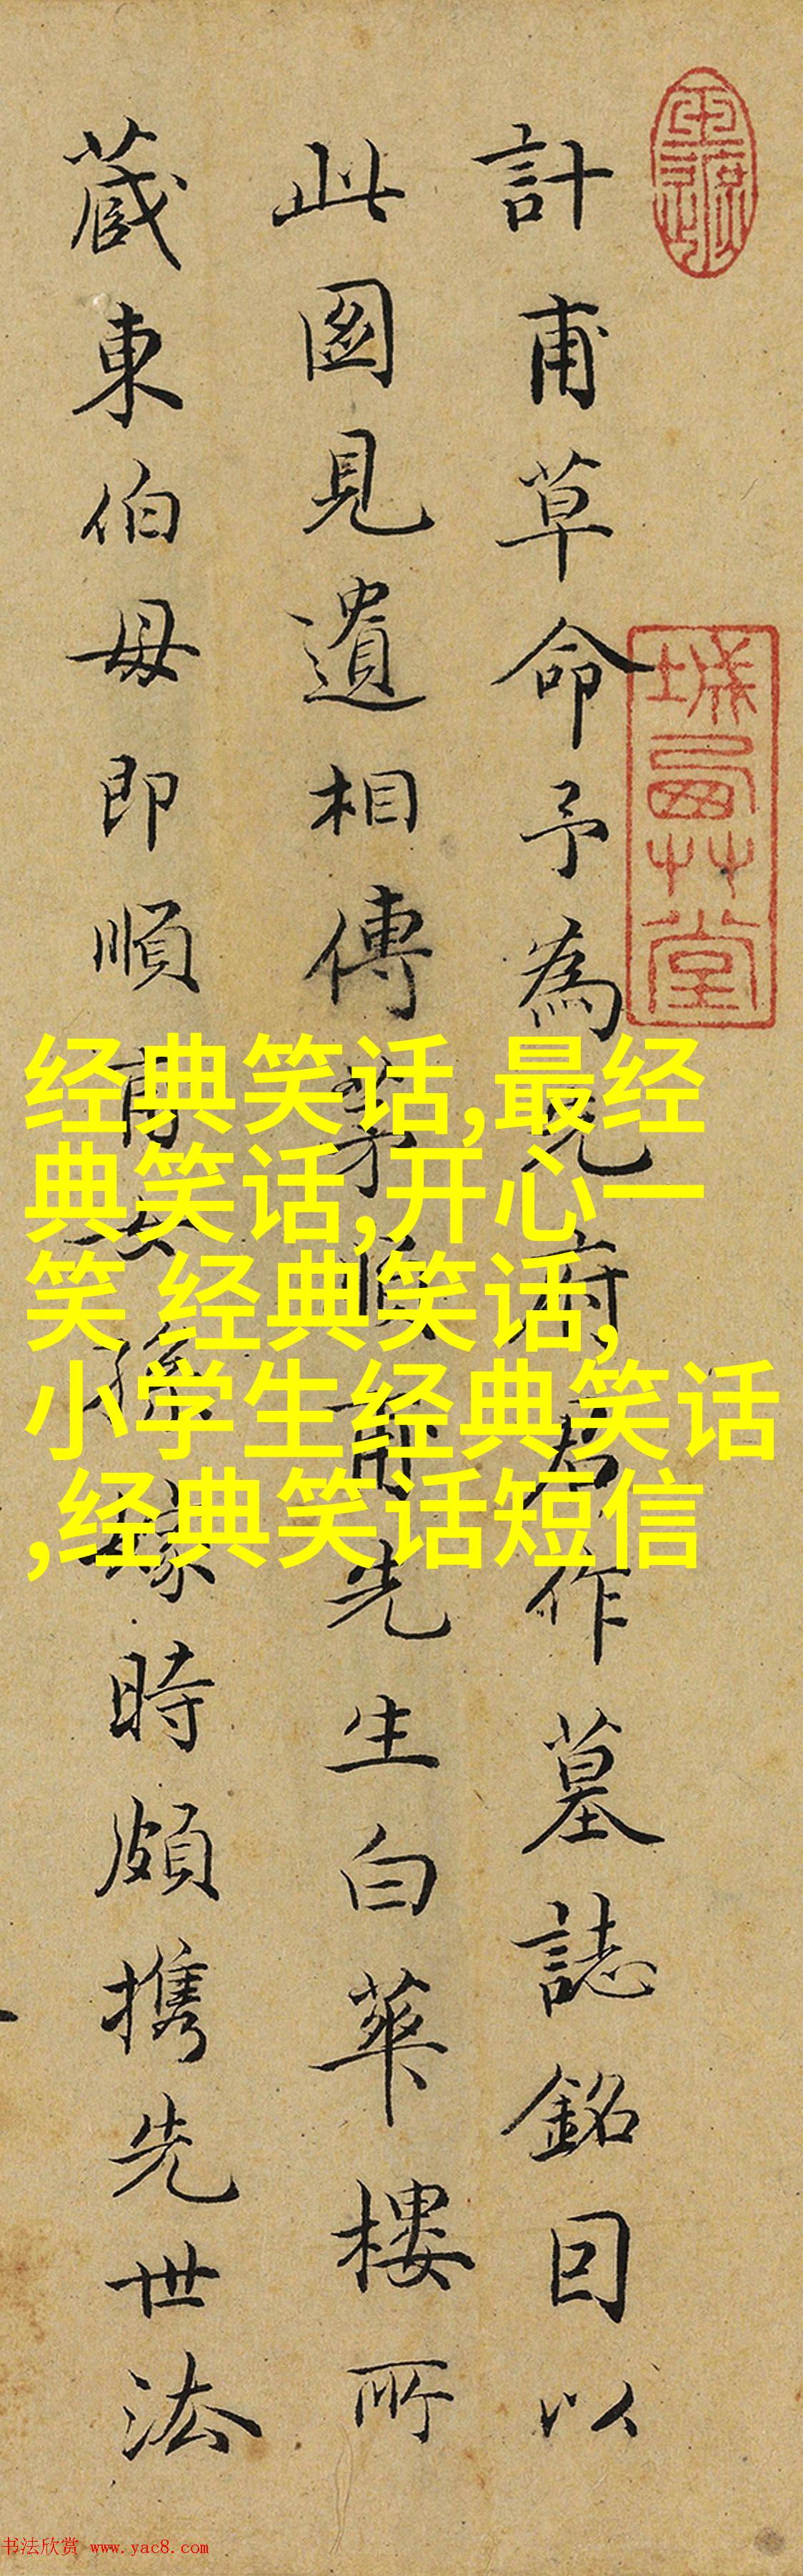 計甫草命予為兄府君作墓誌銘回以
此圖見遺相傳某順甫先生白華樓所
蔵東伯母即順甫女孫嫁時頗携先世法
经典笑话,最经
典笑话,开心一
笑 经典笑话,
小学生经典笑话
,经典笑话短信
书法欣赏 www.yac8.com